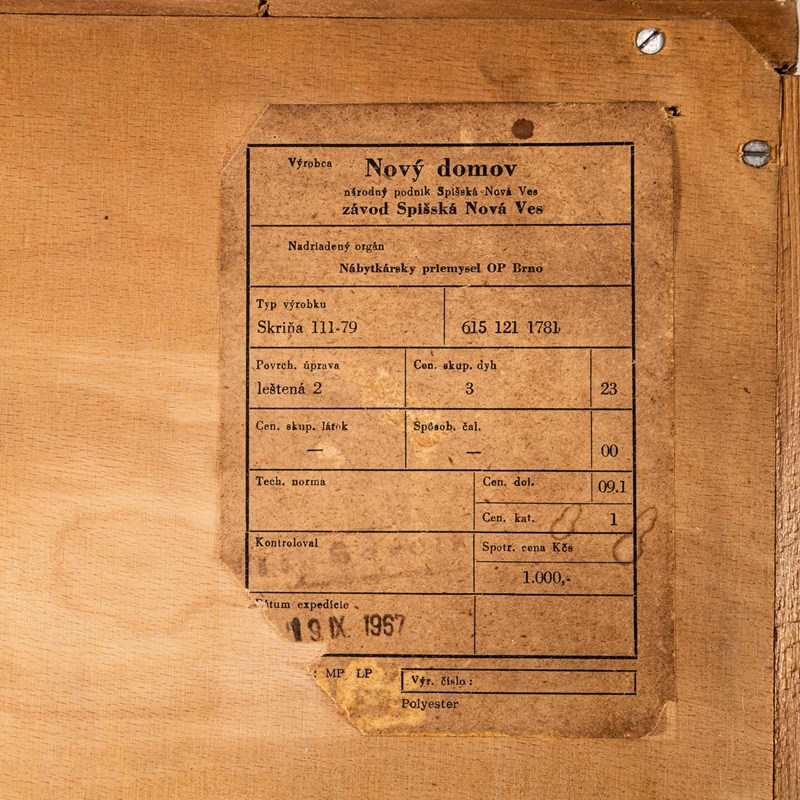 Výrobca Nový domov
národný podnik Spišská Nová Ves
závod Spišská Nová Ves
Nadriadený orgán
Nábytkársky priemysel OP Brno
Typ výrobku
Skriňa 111-79 615 121 1781
Povrch. úprava Cen. skup. dyh
leštená 2 3 23
Cen. skup. látok Spôsob. čal.
— — 00
Tech. norma Cen. dol. 09.1
Cen. kat. 1
Kontroloval Spotr. cena Kčs
1.000,-
Dátum expedície
19 IX. 1967
: MP LP Výr. číslo:
Polyester